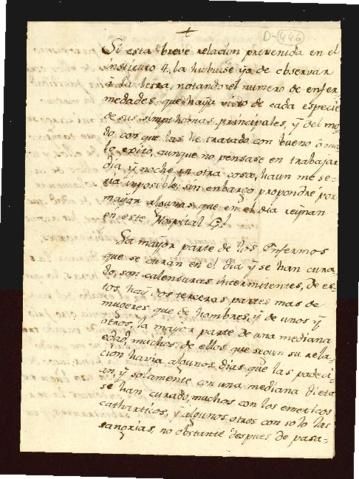 D-1446
Si esta breve relacion prevenida en el
instituto 4. la hubiese yo de observar
à la letra, notando el numero de enfer-
medades, que haya visto de cada especie
de sus simpthomas principales, y del mo-
do con que las he tratado con bueno ò ma-
lo exito, aunque no pensase en trabajar
dia y noche en otra cosa, haun me se-
ria imposible; sin embargo propondrè por
mayor algunas, que en el dia reynan
en este Hospital Gl.
La mayor parte de los Enfermos
que se curan en el dia y se han cura-
do, son calenturas intermitentes, de es-
tos, hay dos terceras partes mas de
mugeres que de hombres, y de unos y
otros, la mayor parte de una mediana
edad, muchos de ellos que segun su rela-
cion havia algunos dias, que las padeci-
an, y solamente con una mediana dieta
se han curado, muchos con los emeticos
catharticos, y algunos otros con solo las
sangrias, no obstante despues de pasa-